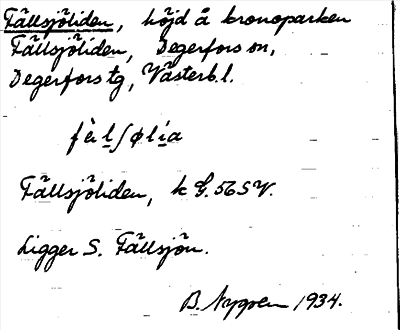 Fällsjöliden, höjd å kronoparken
Fällsjöliden, Degerfors sn,
Degerfors tg, Västerb.l.
fèlʃølia
Fällsjöliden, k G. 56 S V.
Ligger S. Fällsjön.
B. Nygren 1934.